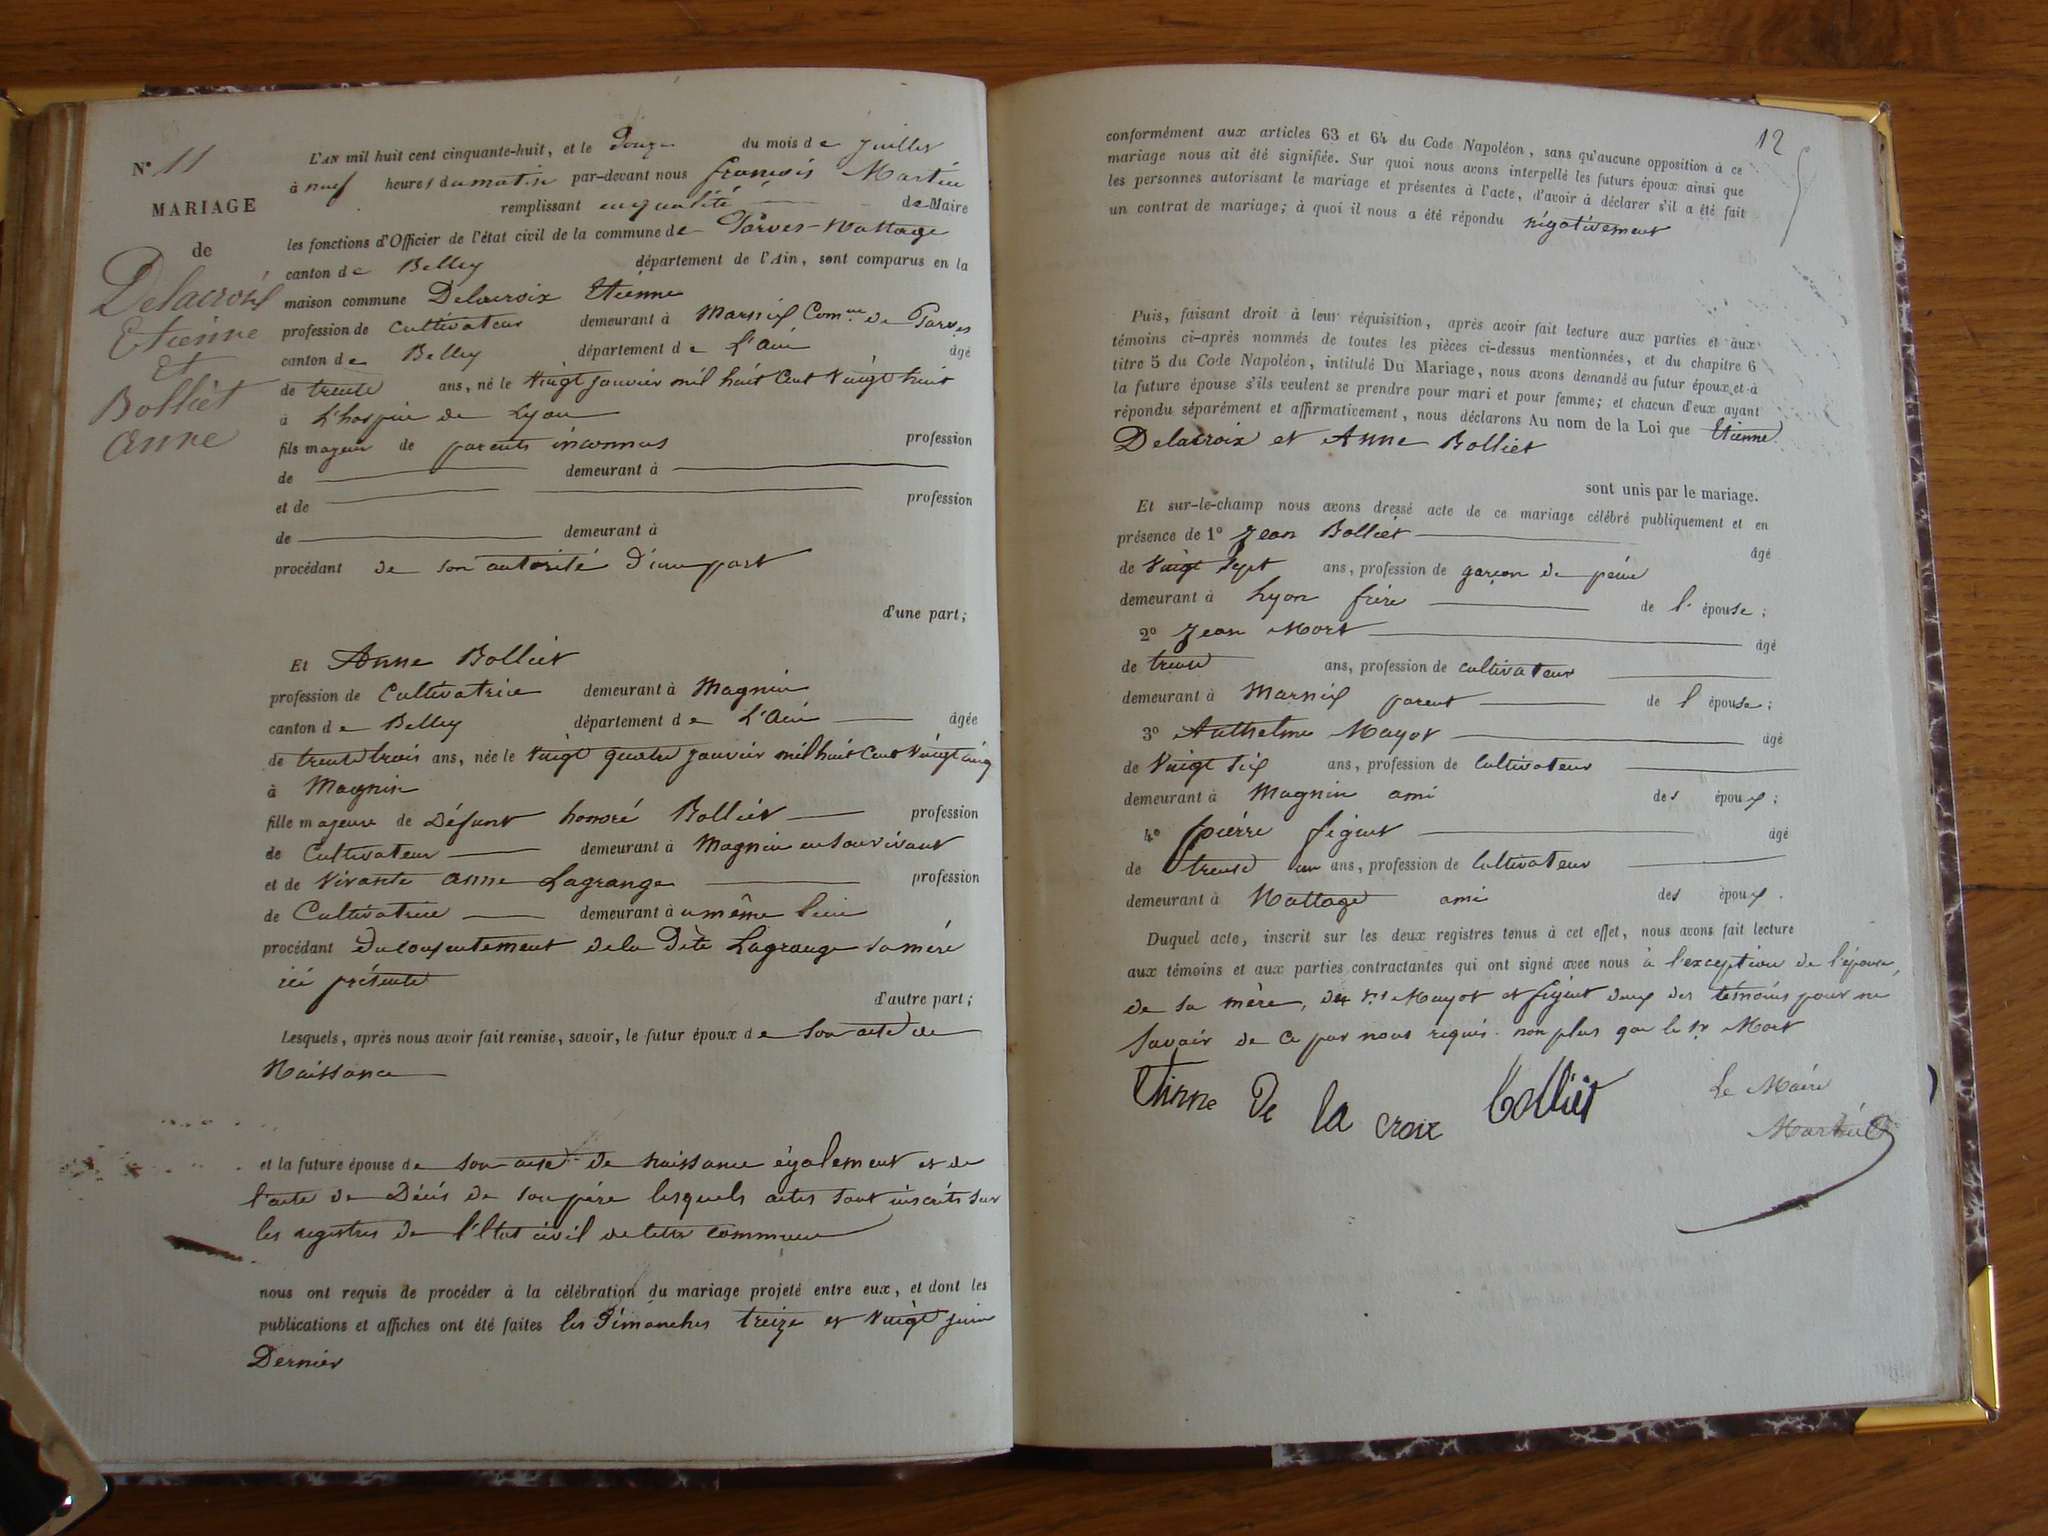 N° 11
MARIAGE
de
Delacroix
Etienne
Et
Bolliet
anne
L'AN mil huit cent cinquante-huit, et le Douze du mois de Juillet
à neuf heures du matin par-devant nous françois Martin
remplissant en qualité de Maire
les fonctions d'Officier de l'état civil de la commune de Parves-Nattage
canton de Belley département de l'Ain, sont comparus en la
maison commune Delacroix Etienne
profession de cultivateur demeurant à Marnix Com.ne de Parves
canton de Belley département de L'ain âgé
de trente ans, né le vingt janvier mil huit cent vingt huit
à L'hospice de Lyon
fils majeur de parents inconnus profession
de demeurant à
et de profession
de demeurant à
procédant de son autorité d'une part
d'une part;
Et Anne Bolliet
profession de Cultivatrice demeurant à Magnin
canton de Belley département de L'Ain âgée
de trente trois ans, née le vingt quatre janvier mil huit cent vingt cinq
à Magnin
fille majeure de Défunt honoré Bolliet profession
de Cultivateur demeurant à Magnin en son vivant
et de vivante anne Lagrange profession
de Cultivatrice demeurant à même lieu
procédant du consentement de la dite Lagrange sa mère
ici présente
d'autre part;
Lesquels, après nous avoir fait remise, savoir, le futur époux de son acte de
Naissance
et la future épouse de son acte de naissance également et de
l'acte de Décés de son père lesquels actes sont inscrits sur
les registres de l'Etat civil de cette commune
nous ont requis de procéder à la célébration du mariage projeté entre eux, et dont les
publications et affiches ont été faites les Dimanches treize et vingt juin
Dernier
12
conformément aux articles 63 et 64 du Code Napoléon, sans qu'aucune opposition à ce
mariage nous ait été signifiée. Sur quoi nous avons interpellé les futurs époux ainsi que
les personnes autorisant le mariage et présentes à l'acte, d'avoir à déclarer s'il a été fait
un contrat de mariage; à quoi il nous a été répondu négativement
Puis, faisant droit à leur réquisition, après avoir fait lecture aux parties et aux
témoins ci-après nommés de toutes les pièces ci-dessus mentionnées, et du chapitre 6
titre 5 du Code Napoléon, intitulé Du Mariage, nous avons demandé au futur époux et à
la future épouse s'ils veulent se prendre pour mari et pour femme; et chacun d'eux ayant
répondu séparément et affirmativement, nous déclarons Au nom de la Loi que Etienne
Delacroix et Anne Bolliet
sont unis par le mariage.
Et sur-le-champ nous avons dressé acte de ce mariage célébré publiquement et en
présence de 1° Jean Bolliet âgé
de vingt sept ans, profession de garçon de peine
demeurant à Lyon frère de l'épouse;
2° Jean Mort âgé
de trente ans, profession de cultivateur
demeurant à Marnix parent de l épouse;
3° Anthelme Mayot âgé
de vingt six ans, profession de Cultivateur
demeurant à Magnin ami des époux;
4° pierre figuet âgé
de trente un ans, profession de Cultivateur
demeurant à Nattage ami des époux.
Duquel acte, inscrit sur les deux registres tenus à cet effet, nous avons fait lecture
aux témoins et aux parties contractantes qui ont signé avec nous à l'exception de l'épouse,
de sa mère, des Mayot et figuet deux des témoins pour ne
savoir de ce par nous requis. non plus que le Sr Mort
Etinne De la croix bolliet Le Maire
Martin